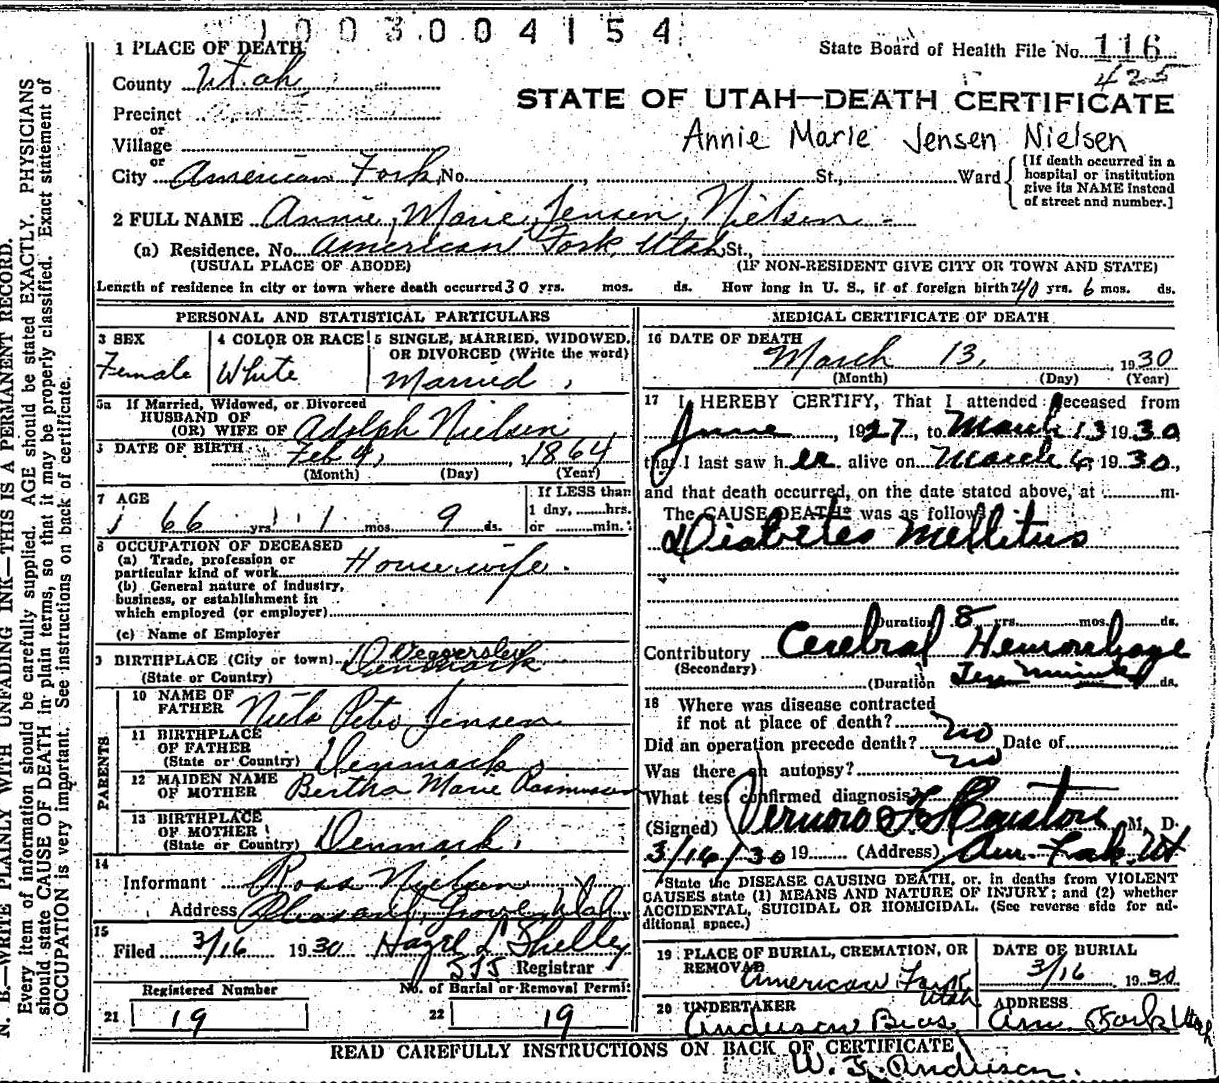 1003004154
1 PLACE OF DEATH
State Board of Health File No. 116
425
County Utah
STATE OF UTAH—DEATH CERTIFICATE
Precinct
or
Village
Annie Marie Jensen Nielsen
or
City American Fork No. , St., Ward
[If death occurred in a hospital or institution give its NAME instead of street and number.]
2 FULL NAME Annie Marie Jensen Nielsen
(a) Residence. No. American Fork, Utah St.,
(USUAL PLACE OF ABODE) (IF NON-RESIDENT GIVE CITY OR TOWN AND STATE)
Length of residence in city or town where death occurred 30 yrs. mos. ds. How long in U. S., if of foreign birth? 40 yrs. 6 mos. ds.
PERSONAL AND STATISTICAL PARTICULARS
3 SEX Female
4 COLOR OR RACE White
5 SINGLE, MARRIED, WIDOWED, OR DIVORCED (Write the word) Married
5a If Married, Widowed, or Divorced
HUSBAND OF
(OR) WIFE OF Adolph Nielsen
DATE OF BIRTH Feb 4, 1864
(Month) (Day) (Year)
7 AGE 66 yrs 1 mos 9 ds.
If LESS than
1 day, hrs.
or min.
8 OCCUPATION OF DECEASED
(a) Trade, profession or
particular kind of work Housewife.
(b) General nature of industry,
business, or establishment in
which employed (or employer)
(c) Name of Employer
9 BIRTHPLACE (City or town)
(State or Country) Denmark
PARENTS
10 NAME OF
FATHER Niels Petro Jensen
11 BIRTHPLACE
OF FATHER
(State or Country) Denmark
12 MAIDEN NAME
OF MOTHER Bertha Marie Rasmussen
13 BIRTHPLACE
OF MOTHER
(State or Country) Denmark
14
Informant Ross Nielsen
Address Pleasant Grove, Utah
15
Filed 3/16 1930 Hazel L Shelley
515 Registrar
Registered Number No. of Burial or Removal Permit
21 19 22 19
MEDICAL CERTIFICATE OF DEATH
16 DATE OF DEATH
March 13, 1930
(Month) (Day) (Year)
17 I HEREBY CERTIFY, That I attended deceased from
June, 1927, to March 13 1930,
that I last saw her alive on March 6, 1930,
and that death occurred, on the date stated above, at m.
The CAUSE DEATH* was as follows
Diabetes Mellitus
Duration 8 yrs. mos. ds.
Contributory Cerebral Hemorrhage
(Secondary)
(Duration Ten minutes ds.
18 Where was disease contracted
if not at place of death?
Did an operation precede death? no Date of
Was there an autopsy? no
What test confirmed diagnosis?
(Signed) Vernon F Houston M. D.
3/16/30 19 (Address) Am. Fork Ut
*State the DISEASE CAUSING DEATH, or, in deaths from VIOLENT
CAUSES state (1) MEANS AND NATURE OF INJURY; and (2) whether
ACCIDENTAL, SUICIDAL OR HOMICIDAL. (See reverse side for ad-
ditional space.)
19 PLACE OF BURIAL, CREMATION, OR
REMOVAL American Fork
Utah
DATE OF BURIAL
3/16 1930
20 UNDERTAKER
Anderson Bros.
ADDRESS
Am. Fork Utah
READ CAREFULLY INSTRUCTIONS ON BACK OF CERTIFICATE
W. J. Anderson.
N. B.—WRITE PLAINLY WITH UNFADING INK—THIS IS A PERMANENT RECORD.
Every item of information should be carefully supplied. AGE should be stated EXACTLY. PHYSICIANS
should state CAUSE OF DEATH in plain terms, so that it may be properly classified. Exact statement of
OCCUPATION is very important. See instructions on back of certificate.